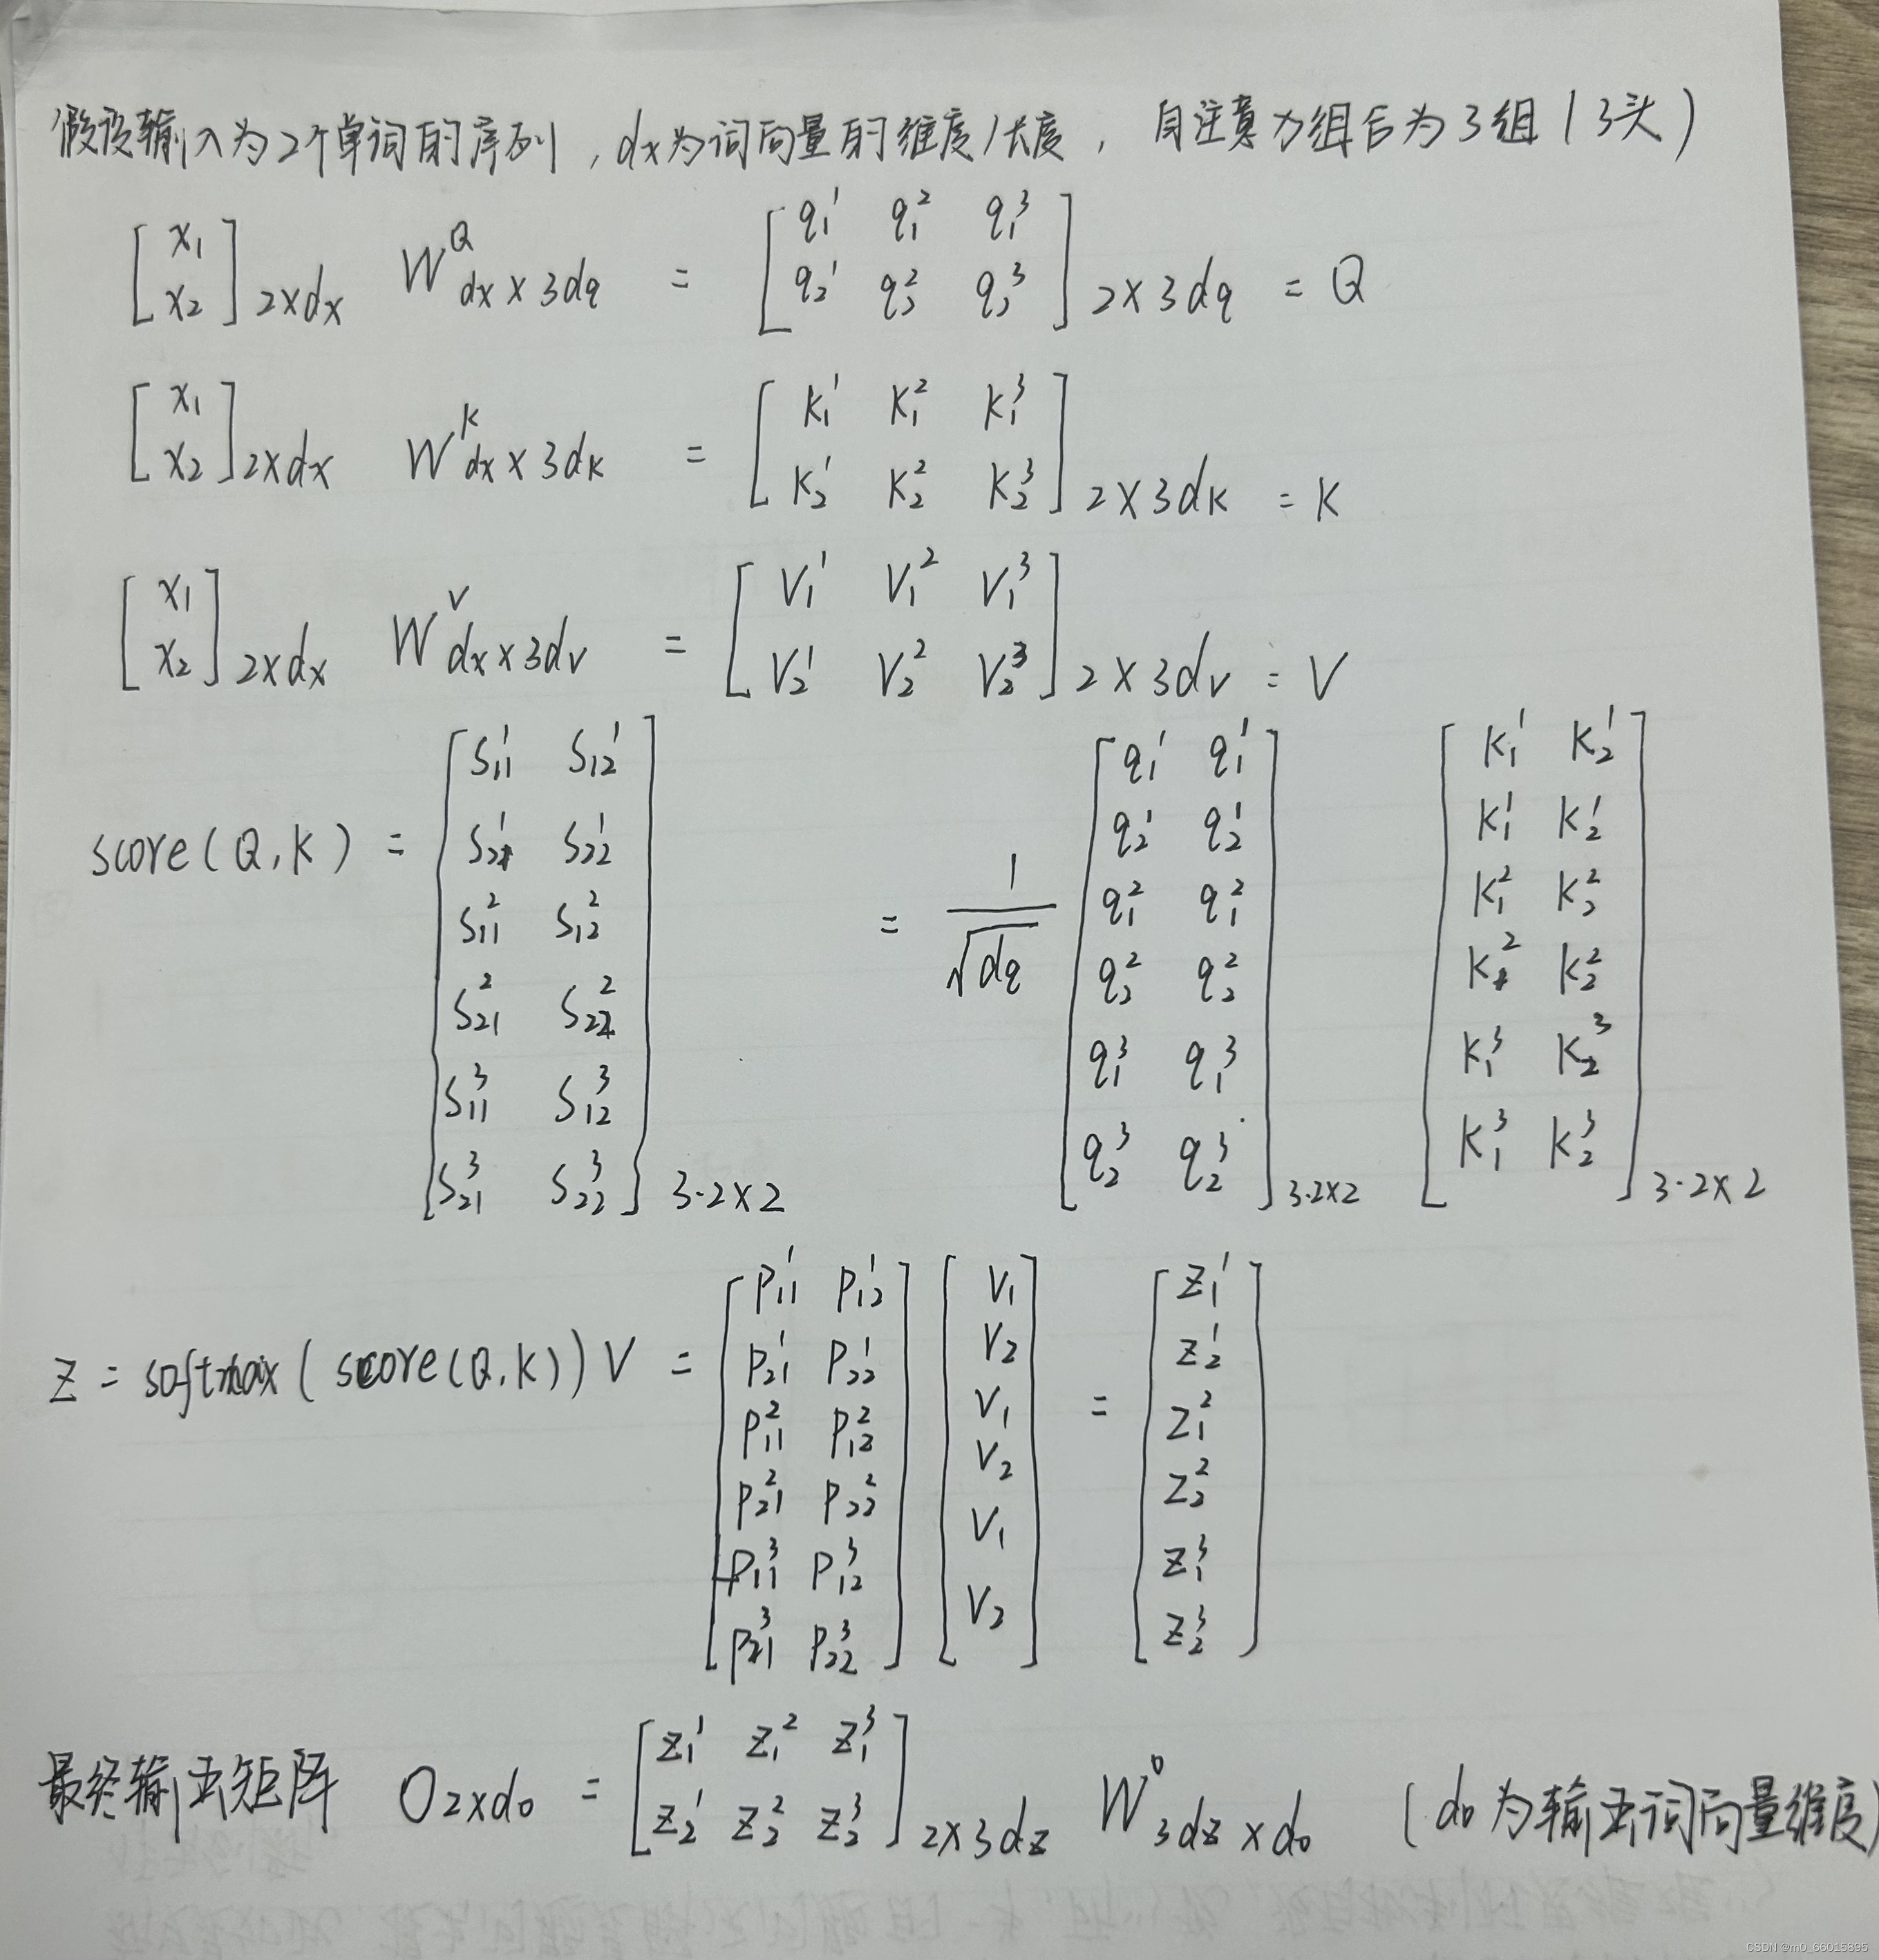 假设输入为2个单词的序列，dx为词向量的维度/长度，自注意力组合为3组（3头）
[x₁ x₂]2×dx W^Q dx×3dq = [q₁¹ q₁² q₁³
q₂¹ q₂² q₂³]2×3dq = Q
[x₁ x₂]2×dx W^K dx×3dk = [k₁¹ k₁² k₁³
k₂¹ k₂² k₂³]2×3dk = K
[x₁ x₂]2×dx W^V dx×3dv = [V₁¹ V₁² V₁³
V₂¹ V₂² V₂³]2×3dv = V
score(Q,K) = [S₁₁¹ S₁₂¹
S₂₁¹ S₂₂¹
S₁₁² S₁₂²
S₂₁² S₂₂²
S₁₁³ S₁₂³
S₂₁³ S₂₂³]3·2×2
= 1/√dq [q₁¹ q₁¹
q₂¹ q₂¹
q₁² q₁²
q₂² q₂²
q₁³ q₁³
q₂³ q₂³]3·2×2
[k₁¹ k₂¹
k₁¹ k₂¹
k₁² k₂²
k₁² k₂²
k₁³ k₂³
k₁³ k₂³]3·2×2
Z = softmax(score(Q,K))V = [P₁₁¹ P₁₂¹
P₂₁¹ P₂₂¹
P₁₁² P₁₂²
P₂₁² P₂₂²
P₁₁³ P₁₂³
P₂₁³ P₂₂³]
[V₁
V₂
V₁
V₂
V₁
V₂]
= [Z₁¹
Z₂¹
Z₁²
Z₂²
Z₁³
Z₂³]
最终输出矩阵 O2×do = [Z₁¹ Z₁² Z₁³
Z₂¹ Z₂² Z₂³]2×3dz W^o 3dz×do （do为输出词向量维度）
CSDN @m0_66015895